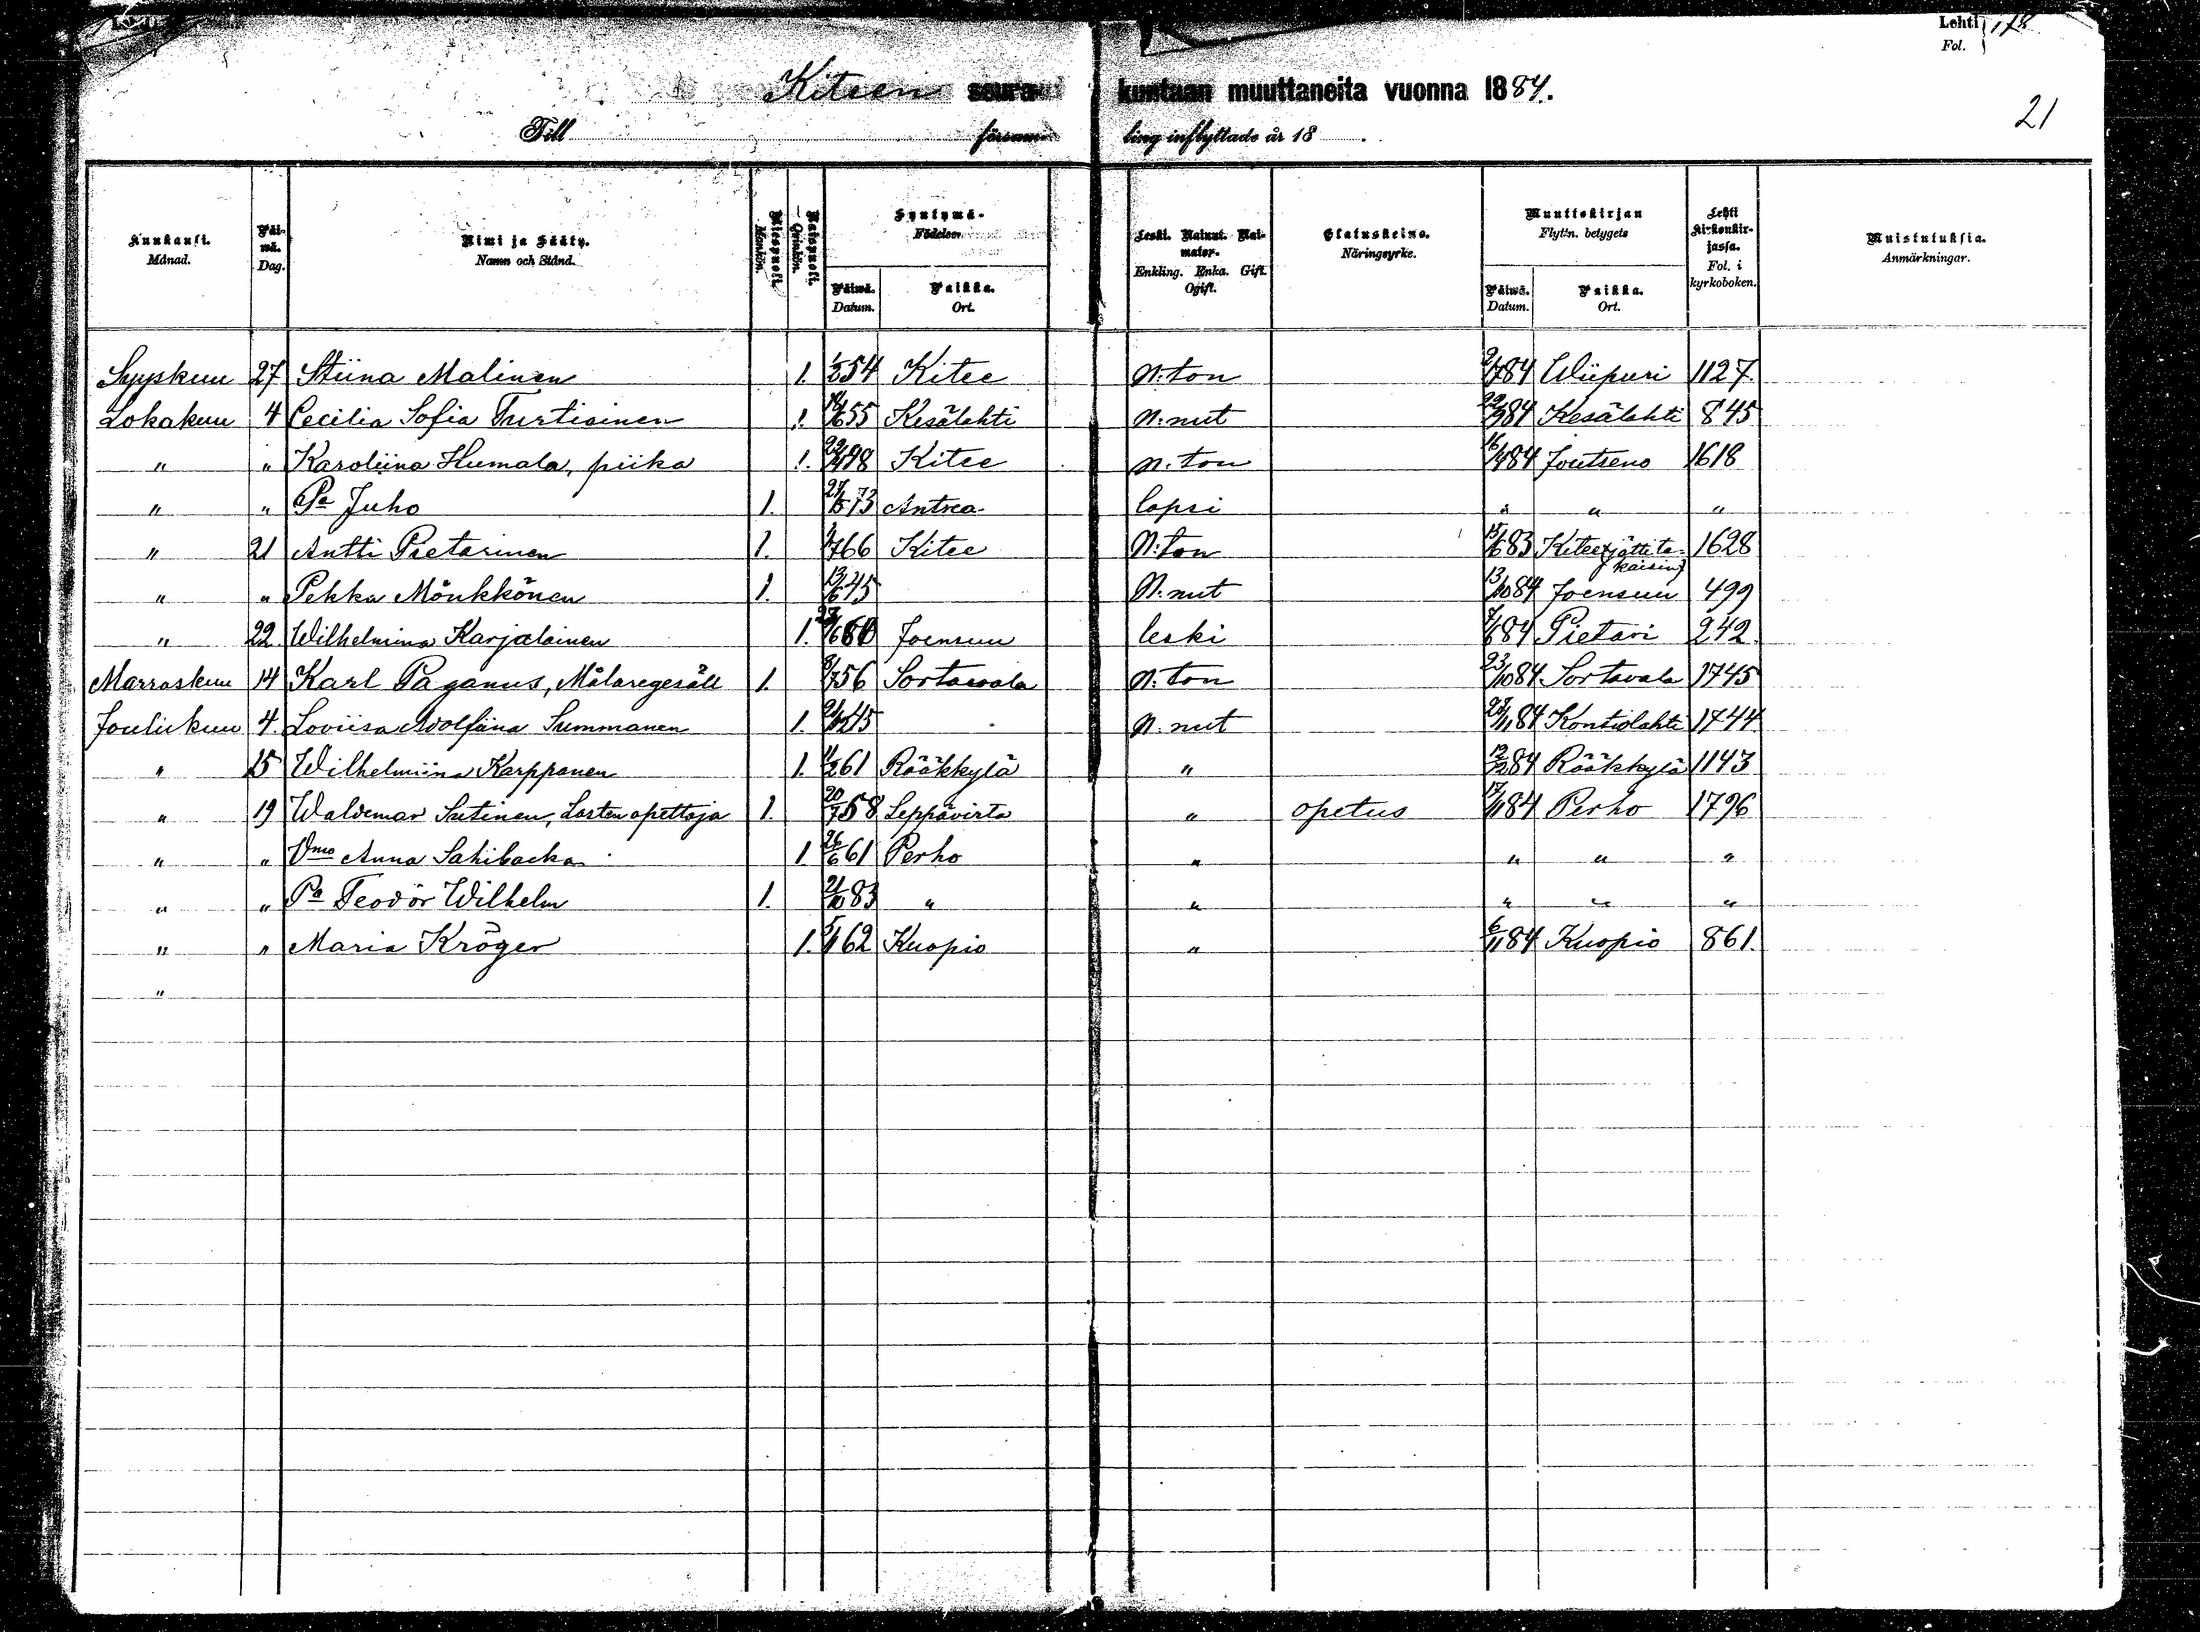 Lehti 178
Fol.
Kiteen seurakuntaan muuttaneita vuonna 1884.
Till försam- ling inflyttade år 18 .
21
Kuukausi. Månad. Päiwä. Dag. Nimi ja Sääty. Namn och Stånd. Miespuoli. Mankön. Naispuoli. Qvinkön. Syntymä- Födelse- Päiwä. Datum. Paikka. Ort. Leski. Nainut. Naimaton. Enkling. Enka. Gift. Ogift. Elatuskeino. Näringsyrke. Muuttokirjan Flyttn. betygets Päiwä. Datum. Paikka. Ort. Lehti kirkonkirjassa. Fol. i kyrkoboken. Muistutuksia. Anmärkningar.
Syyskuu 27 Stiina Malinen 1. 54 Kitee N:ton 84 Wiipuri 1127.
Lokakuu 4 Cecilia Sofia Turtiainen 1. 55 Kesälahti N:nut 84 Kesälahti 845
" " Karoliina Humala, piika 1. 48 Kitee N:ton 84 Joutseno 1618
" " Pa Juho 1. 73 Antrea lapsi " " "
" 21 Antti Pietarinen 1. 66 Kitee N:ton 83 Kitee (jätti takaisin) 1628
" " Pekka Mönkkönen 1. 45 N.nut 13/10 84 Joensuu 499
" 22 Wilhelmina Karjalainen 1. Joensuu leski 84 Pietari 242.
Marraskuu 14 Karl Paganus, Målaregesäll 1. 56 Sortavala N:ton 23/10 84 Sortavala 1745
Joulukuu 4. Loviisa Adolfiina Summanen 1. 45 N.nut 84 Kontiolahti 1744
" 15 Wilhelmiina Karppanen 1. 61 Rääkkylä " 12/12 84 Rääkkylä 1143
" 19 Waldemar Sutinen, Lasten opettaja 1. 20/7 58 Leppävirta " opetus 17/11 84 Perho 1796
" " Vmo Anna Sahibacka 1 26/6 61 Perho " " " "
" " Pa Teodor Wilhelm 1. 21/10 83 " " " " "
" " Maria Kröger 1. 62 Kuopio " 6/11 84 Kuopio 861.
"